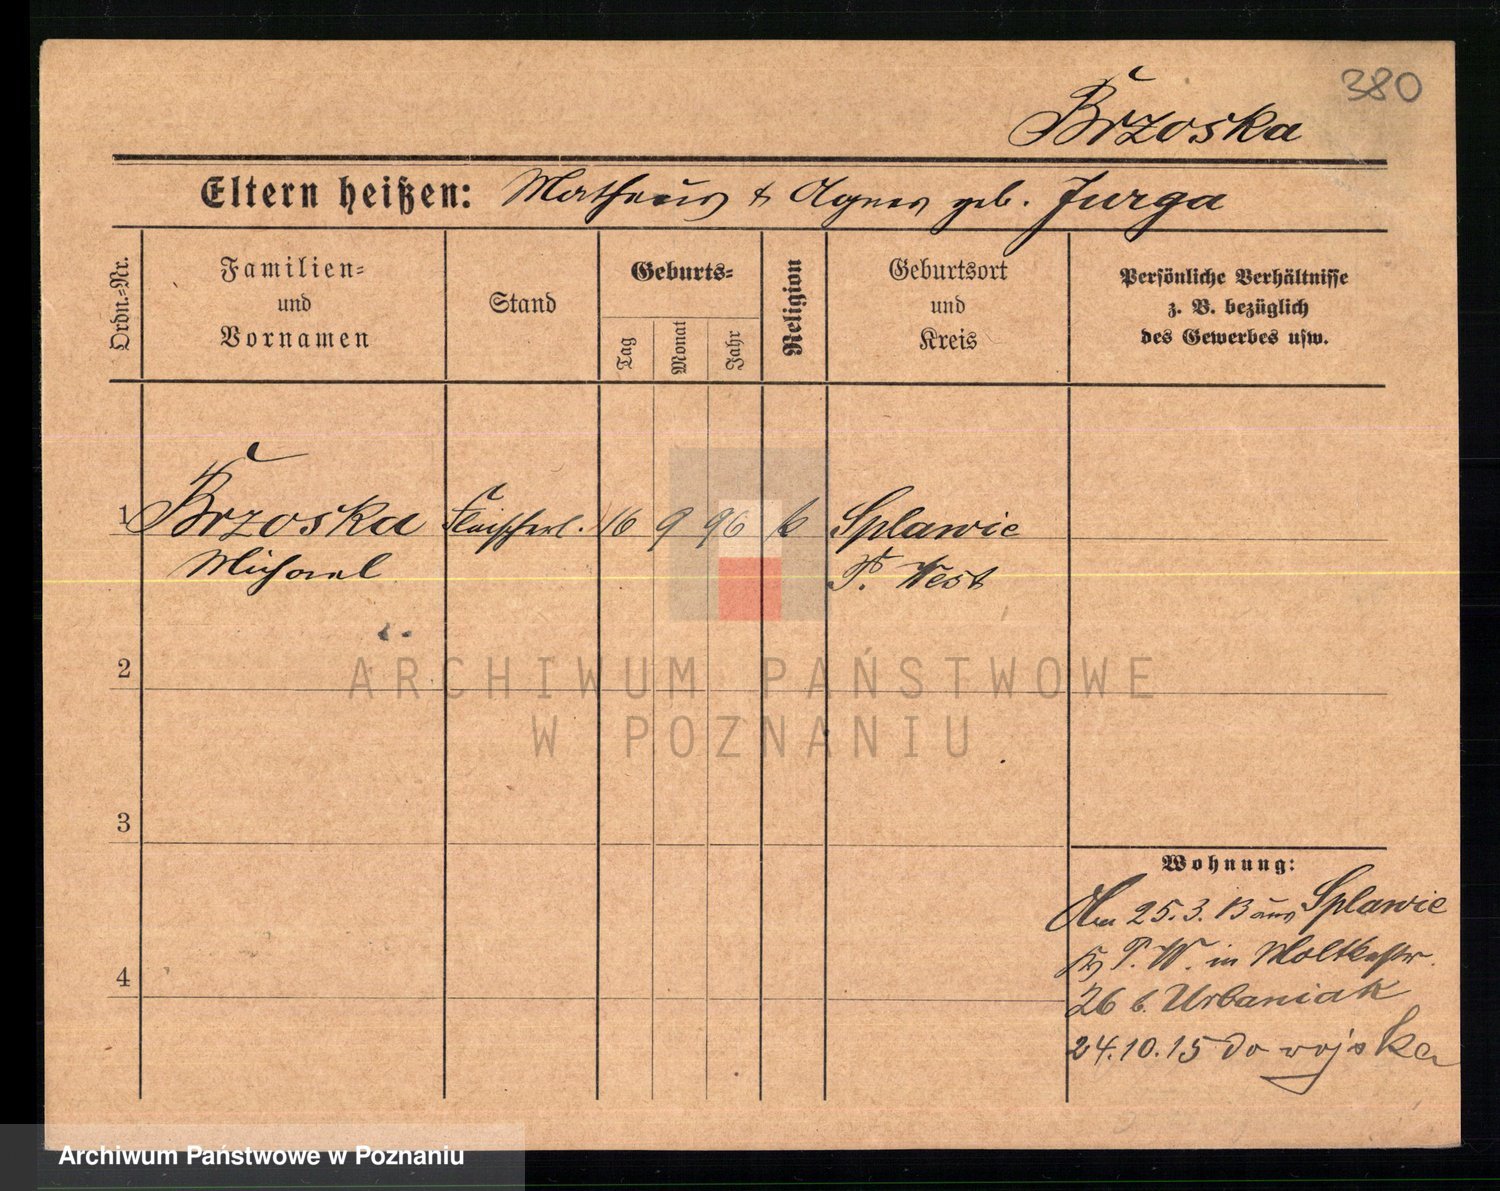 380
Brzoska
Eltern heißen: Matheus & Agnes geb. Jurga
Ordn.-Nr.
Familien-
und
Vornamen
Stand
Geburts-
Tag
Monat
Jahr
Religion
Geburtsort
und
Kreis
Persönliche Verhältnisse
z. B. bezüglich
des Gewerbes usw.
1 Brzoska Fleischerl. 16 9 96 k Splawie
Michael P. West
2
ARCHIWUM PAŃSTWOWE
W POZNANIU
3
Wohnung:
Am 25.3.13 aus Splawie
P. W. in Moltkestr.
26 b. Urbaniak
24.10.15 do wojska
4
Archiwum Państwowe w Poznaniu